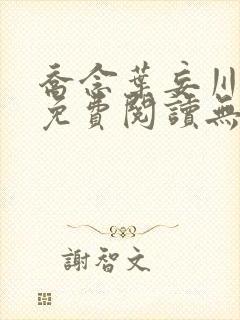 喬念葉妄川
免費閱讀無
謝智文